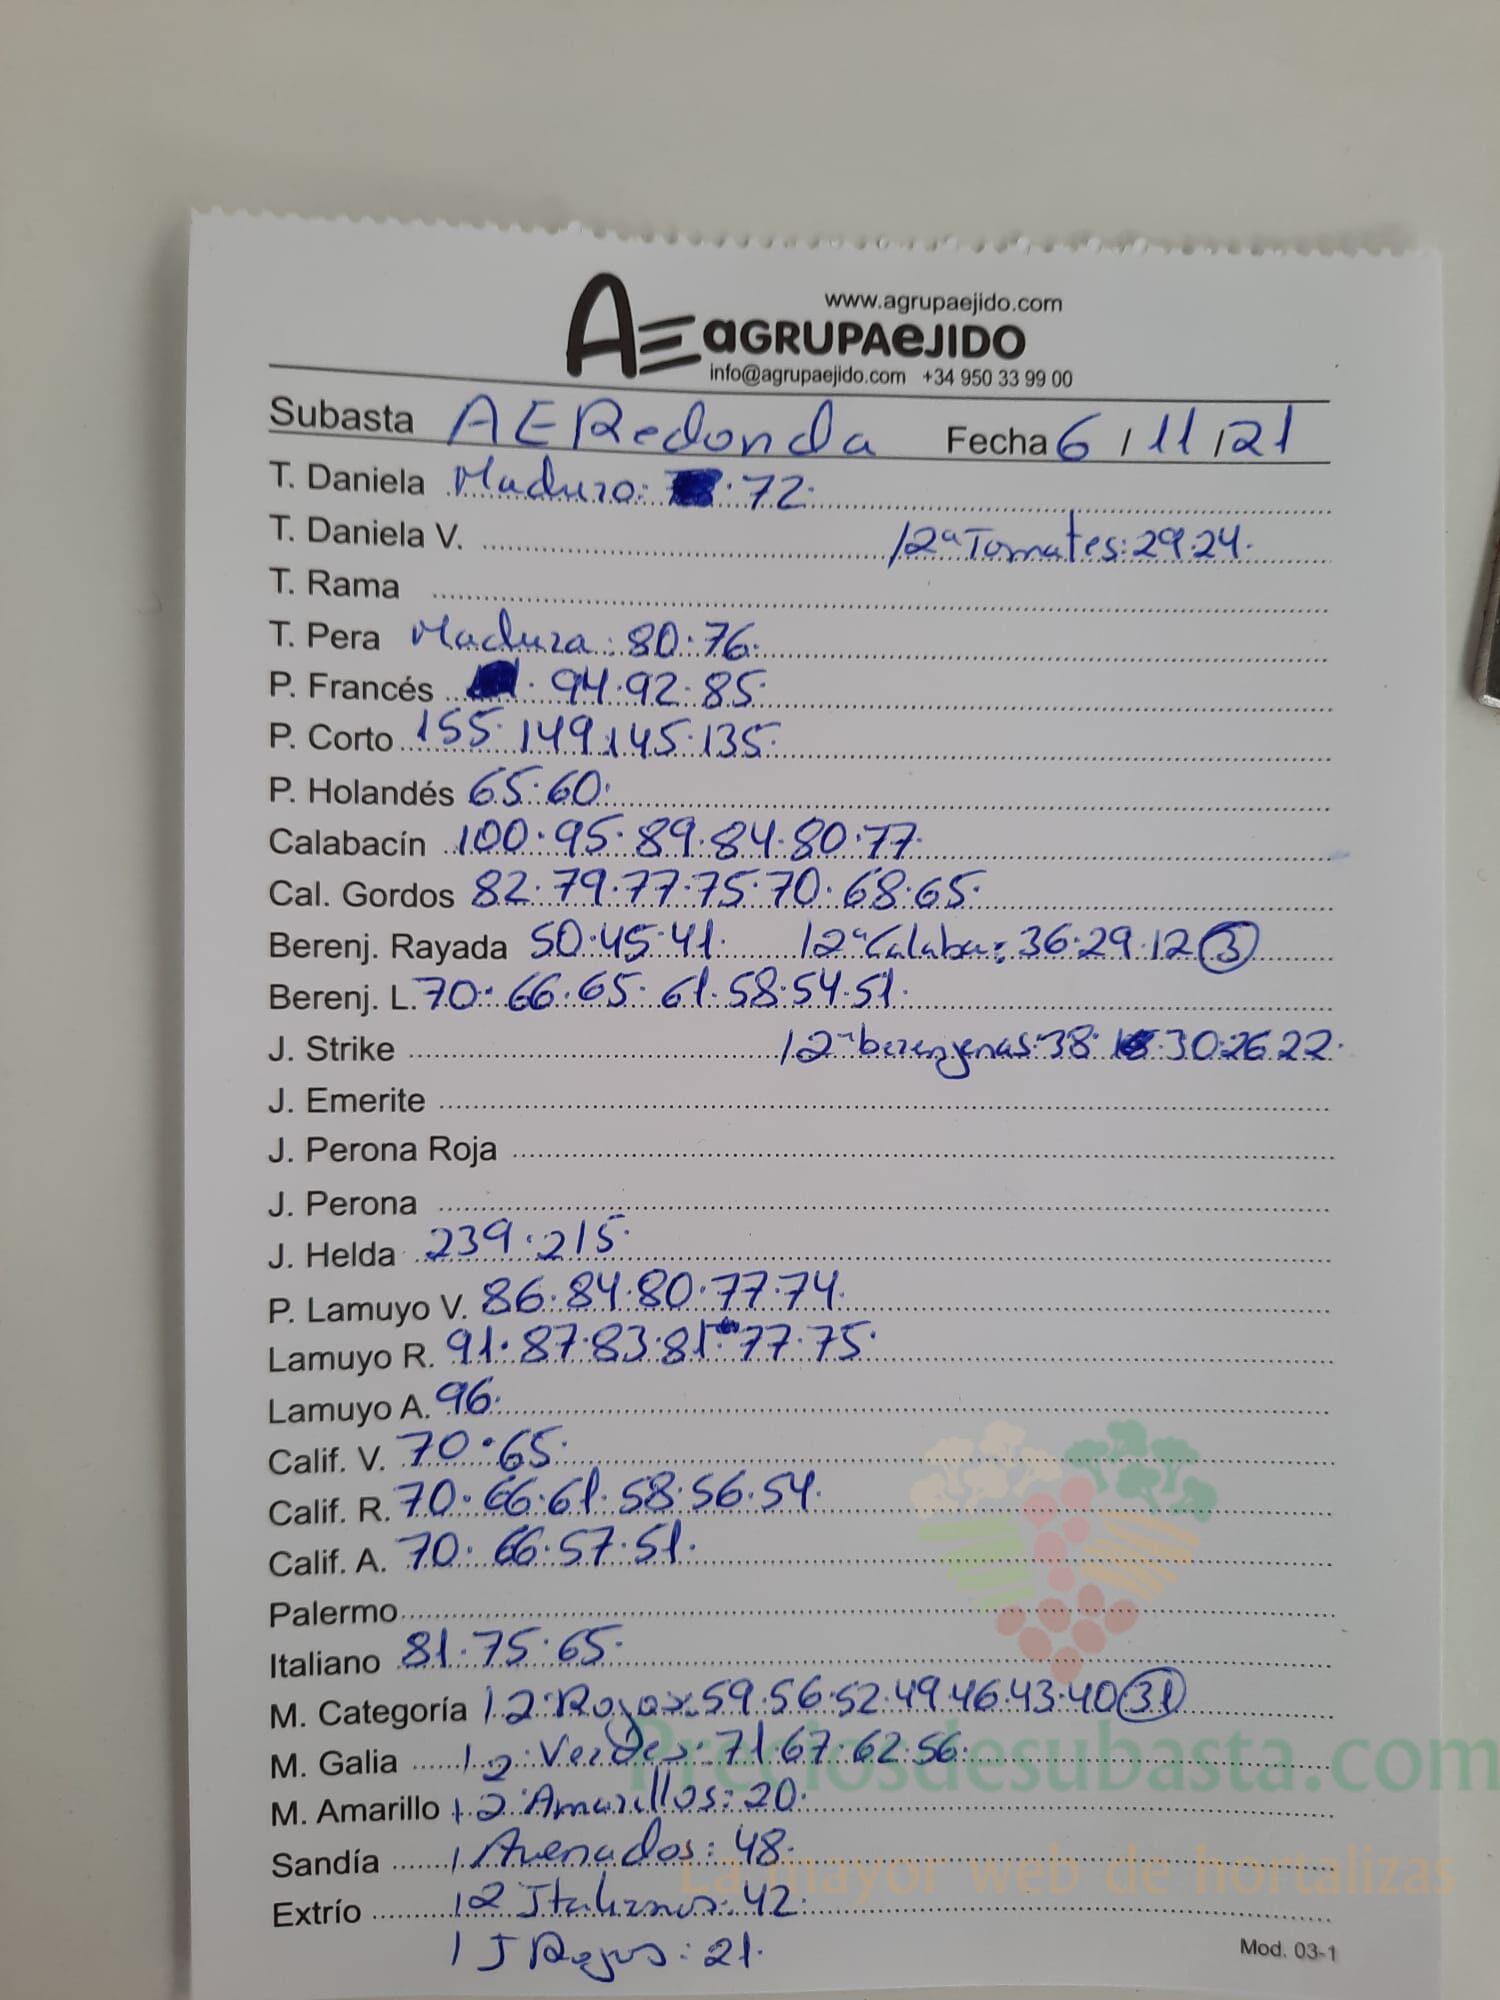 www.agrupaejido.com
AE aGRUPAeJIDO
info@agrupaejido.com +34 950 33 99 00
Subasta AERedonda Fecha 6 / 11 / 21
T. Daniela Maduro: 72.
T. Daniela V. /2ª Tomates: 29.24.
T. Rama
T. Pera Madura: 80.76.
P. Francés : 94.92.85.
P. Corto 155.149.145.135.
P. Holandés 65.60.
Calabacín 100.95.89.84.80.77.
Cal. Gordos 82.79.77.75.70.68.65.
Berenj. Rayada 50.45.41. /2ª Calaba: 36.29.12 (3)
Berenj. L. 70.66.65.61.58.54.51.
J. Strike /2ª berenjenas: 38. 30.26.22.
J. Emerite
J. Perona Roja
J. Perona
J. Helda 239.215.
P. Lamuyo V. 86.84.80.77.74.
Lamuyo R. 91.87.83.81.77.75.
Lamuyo A. 96.
Calif. V. 70.65.
Calif. R. 70.66.61.58.56.54.
Calif. A. 70.66.57.51.
Palermo
Italiano 81.75.65.
M. Categoría /2 Rojos: 59.56.52.49.46.43.40 (31)
M. Galia /2 Verdes: 71.67.62.56.
M. Amarillo /2 Amarillos: 20.
Sandía / Avenados: 48.
Extrío /2 Italianos: 42.
/ J Rojos: 21.
Mod. 03-1
Preciosdesubasta.com
La mayor web de hortalizas